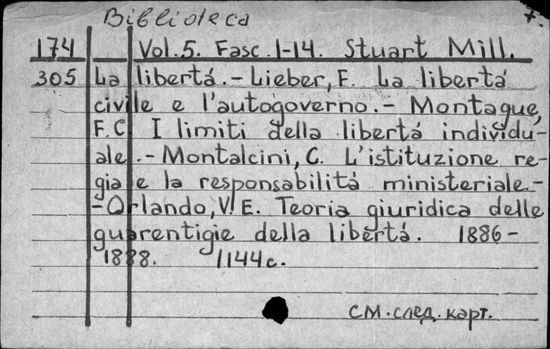 Biblioteca 7.
174 Vol.5. Fasc.1-14. Stuart Mill.
305 La libertá.-Lieber, F. La libertá
civile e l'autogoverno.- Montague,
F.C. I limiti della libertá individu-
ale.-Montalcini, C. L'istituzione re-
gia e la responsabilitá ministeriale.-
-Orlando, V. E. Teoria giuridica delle
guarentigie della libertá. 1886-
1888. 1144c.
см.след.карт.